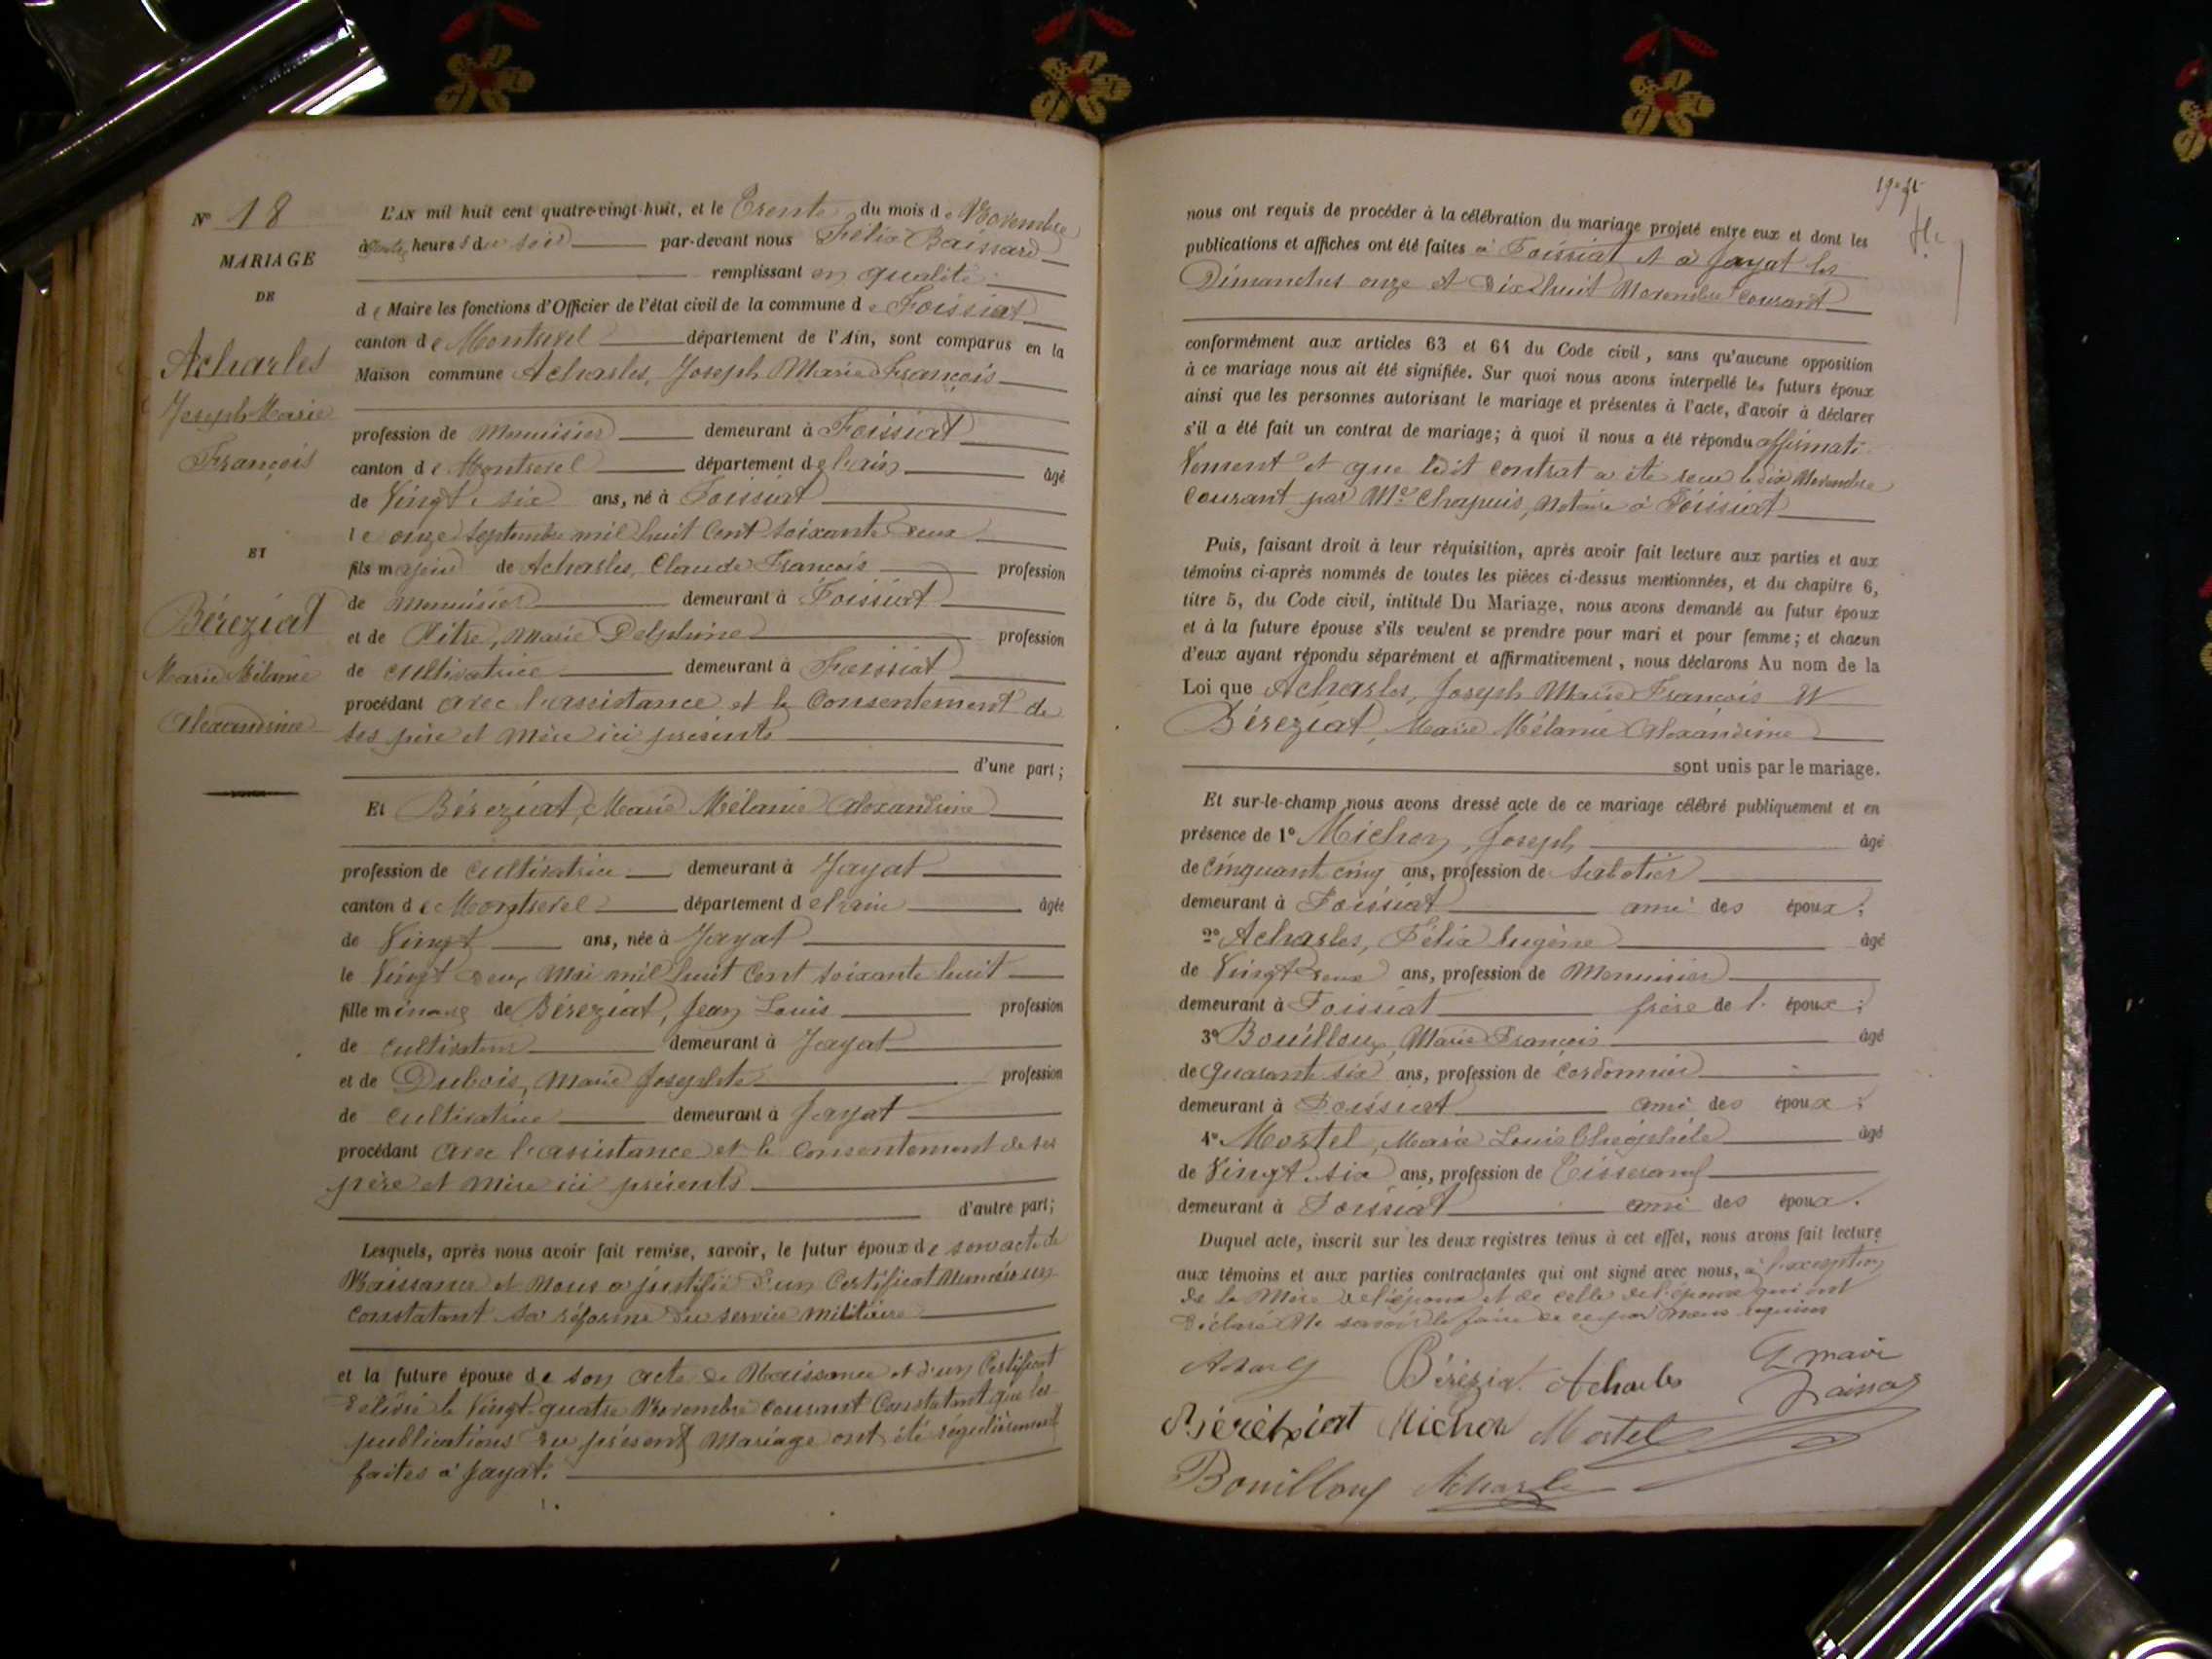 N° 18
MARIAGE
DE
Acharles
Joseph Marie
François
ET
Béreziat
Marie Mélanie
Alexandrine
L'AN mil huit cent quatre-vingt-huit, et le Trente du mois de Novembre
à heures du soir par-devant nous Félix
remplissant en qualité
de Maire les fonctions d'Officier de l'état civil de la commune de Foissiat
canton de Montrevel département de l'Ain, sont comparus en la
Maison commune Acharles, Joseph Marie François
profession de Menuisier demeurant à Foissiat
canton de Montrevel département de l'ain âgé
de Vingt six ans, né à Foissiat
le onze Septembre mil huit Cent soixante deux
fils majeur de Acharles, Claude François profession
de menuisier demeurant à Foissiat
et de Pitre, Marie Delphine profession
de cultivatrice demeurant à Foissiat
procédant avec l'assistance et le Consentement de
ses père et mère ici présents
d'une part;
Et Béreziat, Marie Mélanie Alexandrine
profession de cultivatrice demeurant à Jayat
canton de Montrevel département de l'ain âgée
de Vingt ans, née à Jayat
le Vingt deux Mai mil huit Cent soixante huit
fille mineure de Béreziat, Jean Louis profession
de cultivateur demeurant à Jayat
et de Dubois, Marie Josephte profession
de cultivatrice demeurant à Jayat
procédant avec l'assistance et le Consentement de ses
père et mère ici présents
d'autre part;
Lesquels, après nous avoir fait remise, savoir, le futur époux de son acte de
Naissance et Nous a justifié d'un Certificat
constatant sa réforme du service militaire
et la future épouse de son acte de Naissance et d'un Certificat
délivré le Vingt-quatre Novembre courant Constatant que les
publications du présent Mariage ont été régulièrement
faites à Jayat.
nous ont requis de procéder à la célébration du mariage projeté entre eux et dont les
publications et affiches ont été faites à Foissiat et à Jayat les
Dimanches onze et Dix huit Novembre courant
conformément aux articles 63 et 64 du Code civil, sans qu'aucune opposition
à ce mariage nous ait été signifiée. Sur quoi nous avons interpellé les futurs époux
ainsi que les personnes autorisant le mariage et présentes à l'acte, d'avoir à déclarer
s'il a été fait un contrat de mariage; à quoi il nous a été répondu affirmati-
vement et que ledit contrat a été recu le dix Novembre
courant par Me Chapuis, notaire à Foissiat
Puis, faisant droit à leur réquisition, après avoir fait lecture aux parties et aux
témoins ci-après nommés de toutes les pièces ci-dessus mentionnées, et du chapitre 6,
titre 5, du Code civil, intitulé Du Mariage, nous avons demandé au futur époux
et à la future épouse s'ils veulent se prendre pour mari et pour femme; et chacun
d'eux ayant répondu séparément et affirmativement, nous déclarons Au nom de la
Loi que Acharles, Joseph Marie François et
Béreziat, Marie Mélanie Alexandrine
sont unis par le mariage.
Et sur-le-champ nous avons dressé acte de ce mariage célébré publiquement et en
présence de 1° Michon, Joseph âgé
de Cinquante cinq ans, profession de Sabotier
demeurant à Foissiat ami des époux;
2° Acharles, Félix Eugène âgé
de Vingt deux ans, profession de Menuisier
demeurant à Foissiat frère de l'époux;
3° Bouilloux, Marie François âgé
de quarante six ans, profession de Cordonnier
demeurant à Foissiat ami des époux;
4° Mortel, Marie Louis Théophile âgé
de Vingt six ans, profession de Tisserand
demeurant à Foissiat ami des époux.
Duquel acte, inscrit sur les deux registres tenus à cet effet, nous avons fait lecture
aux témoins et aux parties contractantes qui ont signé avec nous, à l'exception
de la Mère de l'époux et de celle de l'épouse qui ont
déclaré Ne savoir le faire de ce par nous requises
Béréziat Acharles
Michon Mortel
Bouilloux Acharles